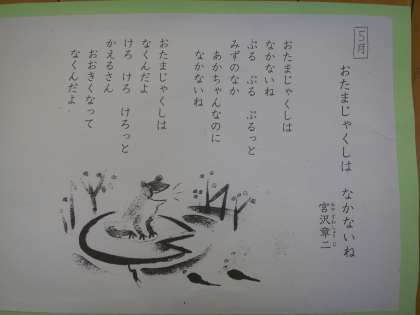 5月
おたまじゃくしは　なかないね
宮沢章二
みやざわしょうじ
おたまじゃくしは
なかないね
ぷる　ぷる　ぷるっと
みずのなか
あかちゃんなのに
なかないね
おたまじゃくしは
なくんだよ
けろ　けろ　けろっと
かえるさん
おおきくなって
なくんだよ